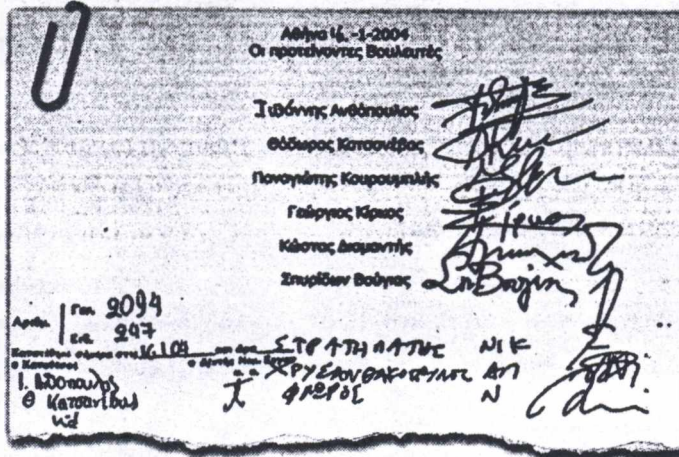 Αθήνα 16-1-2004
Οι προτείνοντες Βουλευτές
Ιωάννης Ανθόπουλος
Θόδωρος Κατσανέβας
Παναγιώτης Κουρουμπλής
Γεώργιος Κίρκος
Κώστας Διαμαντής
Σπυρίδων Βούγιας
Αριθμ. Γεν. 2094
Ειδ. 247
Κατατέθηκε σήμερα στις 16.1.04
ο Καταθέτης
ΣΤΡΑΤΗΛΑΤΗΣ ΝΙΚ
ΧΡΥΣΑΝΘΑΚΟΠΟΥΛΟΣ ΑΛ
ΦΛΩΡΟΣ Ν
Ι. Ανθόπουλος
Θ Κατσανέβας